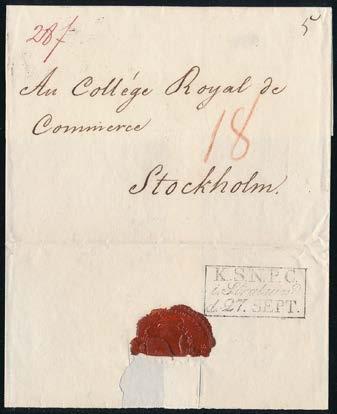 28 f
5
Au Collége Royal de
Commerce
18
Stockholm.
K.S.N.P.C.
i. Stralsund
d. 27. SEPT.